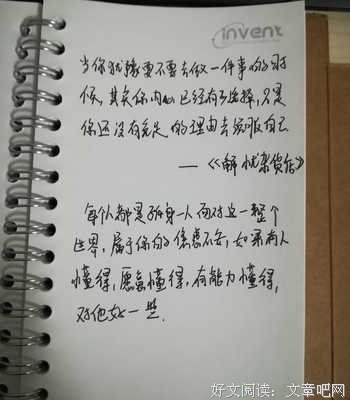 invent
当你犹豫要不要去做一件事的时
候,其实你内心已经有了选择,只是
你还没有充足的理由去说服自己
——《解忧杂货店》
每个人都是孤身一人面对这一整个
世界,属于你的焦虑不安,如果有人
懂得,愿意懂得,有能力懂得,
对他好一些.
好文阅读:文章吧网